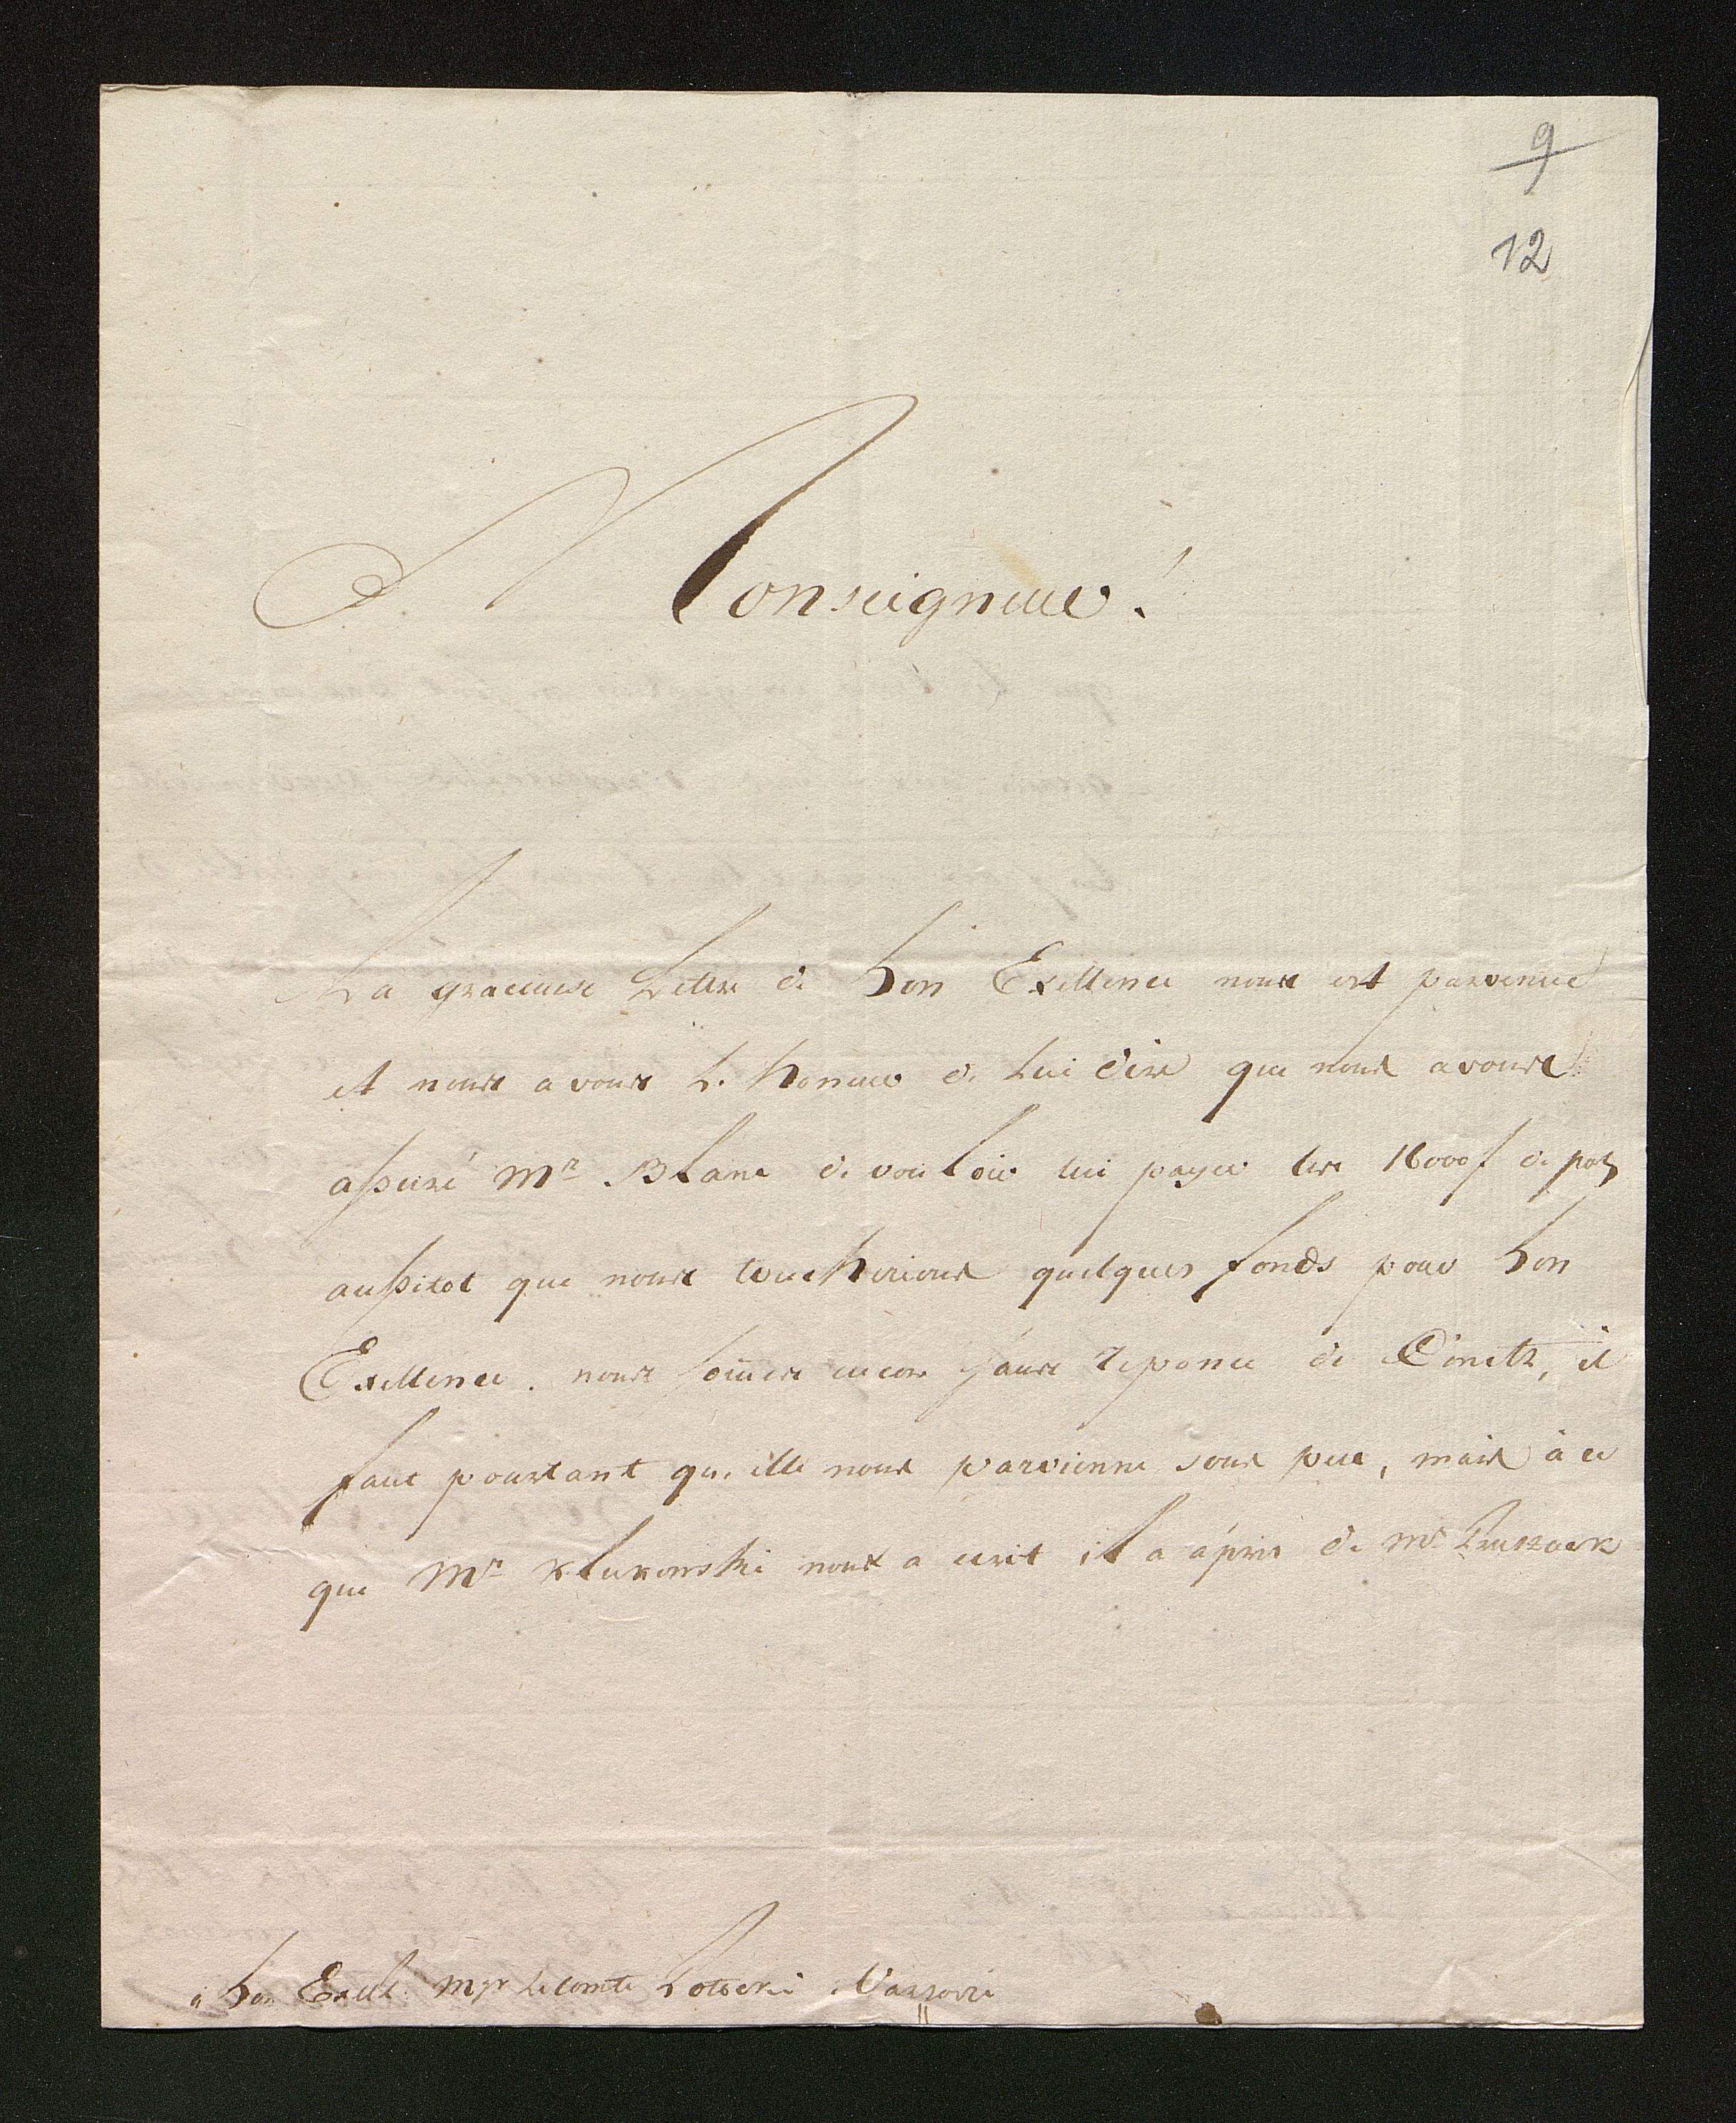 9
12
Monseigneur!
La gracieuse Lettre de Son Exellence nous est parvenue
et nous avons L. honeur de Lui dire que nous avons
assuré Mr Blanc de vouloir lui payer les 16000 f de pol
aussitot que nous toucherions quelques fonds pour Son
Exellence. nous somes encore sans reponce de Dinetz, il
faut pourtant qu. elle nous parvienne sous peu, mais à ce
que Mr Klukowski nous a ecrit il a apris de Mr
a Son Exell: Mgr Le comte Potocki Varsovie